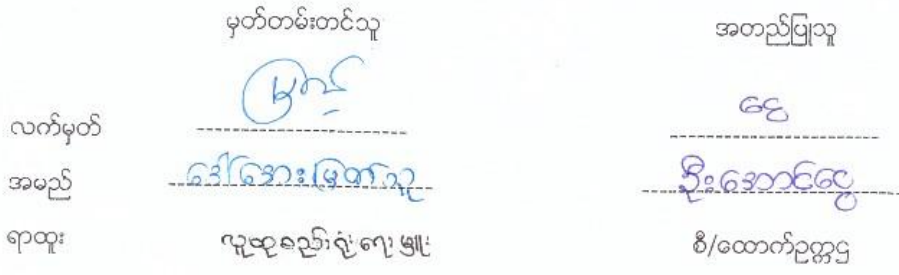 မှတ်တမ်းတင်သူ အတည်ပြုသူ
လက်မှတ် မြတ် ငွေ
အမည် ဒေါ်အေးမြတ်သူ ဦးအောင်ငွေ
ရာထူး လူထုစည်းရုံးရေးမှူး စီ/ထောက်ဥက္ကဌ